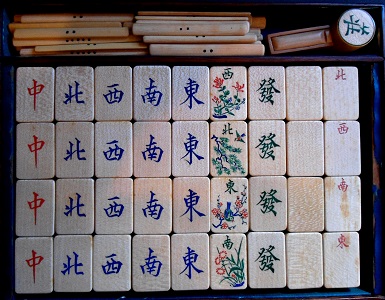 莊
中 北 西 南 東 西 發 北
中 北 西 南 東 北 發 西
中 北 西 南 東 東 發 南
中 北 西 南 東 南 發 東